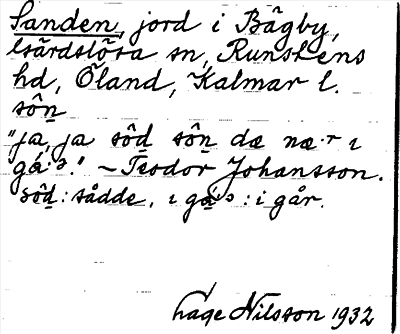 Sanden, jord i Bägby,
Gärdslösa sn, Runstens
hd, Öland, Kalmar l.
sôn
"ja, ja sôd sôn dæ næ·r ɩ
gá·ɔ." ~ Teodor Johansson.
sôd : sådde, ɩ gá·ɔ : i går.
Hage Nilsson 1932